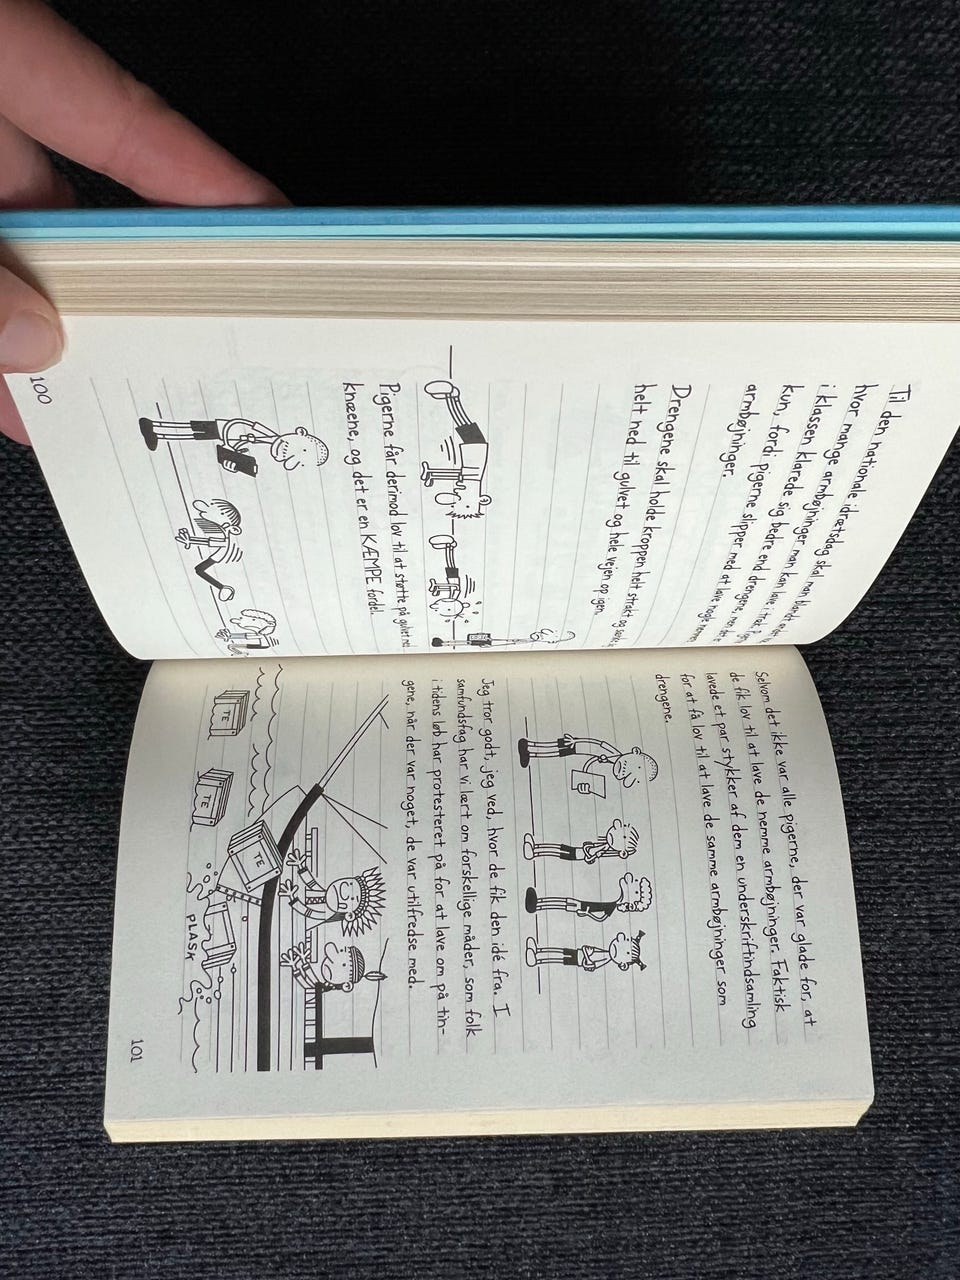 Til den nationale idrætsdag skal man blandt andet
hvor mange armbøjninger man kan lave i træk.
i klassen klarede sig bedre end drengene, men det
kun, fordi pigerne slipper med at lave nogle
armbøjninger.
Drengene skal holde kroppen helt strakt og
helt ned til gulvet og hele vejen op igen.
Pigerne får derimod lov til at støtte på gulvet med
knæene, og det er en KÆMPE fordel.
100
Selvom det ikke var alle pigerne, der var glade for, at
de fik lov til at lave de nemme armbøjninger. Faktisk
lavede et par stykker af dem en underskriftindsamling
for at få lov til at lave de samme armbøjninger som
drengene.
Jeg tror godt, jeg ved, hvor de fik den idé fra. I
samfundsfag har vi lært om forskellige måder, som folk
i tidens løb har protesteret på for at lave om på tin-
gene, når der var noget, de var utilfredse med.
TE
TE
TE
PLASK
101